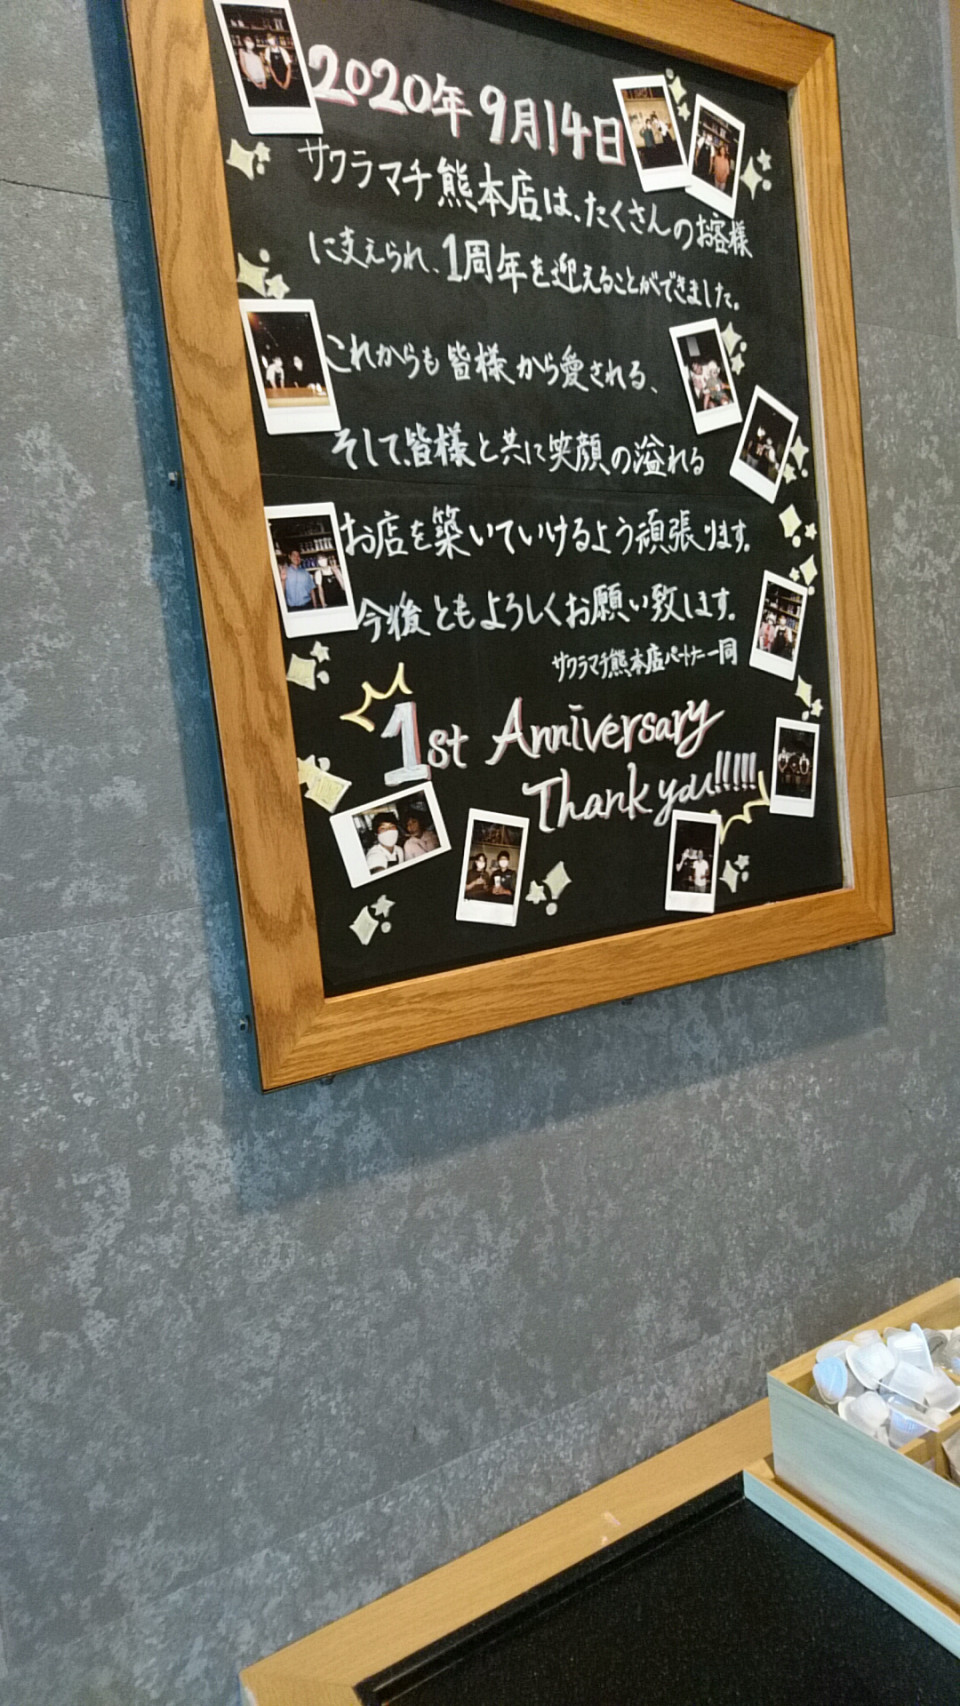 2020年 9月14日
サクラマチ熊本店は、たくさんのお客様
に支えられ、1周年を迎えることができました。
これからも皆様から愛される、
そして、皆様と共に笑顔の溢れる
お店を築いていけるよう頑張ります。
今後ともよろしくお願い致します。
サクラマチ熊本店パートナー一同
1st Anniversary
Thank you!!!!!